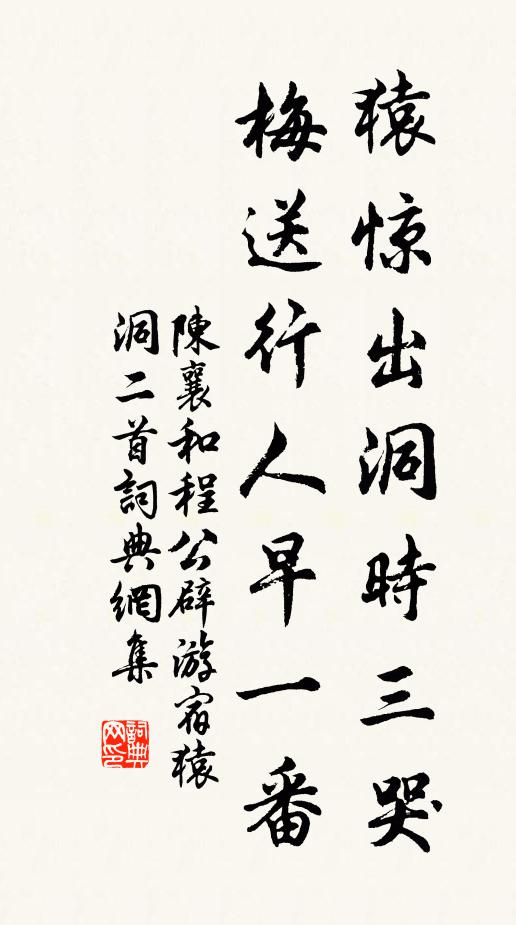 猿惊出洞時三哭
梅送行人早一番
陳襄和程公辟游宿猿
洞二首詞典網集
詞典
网印